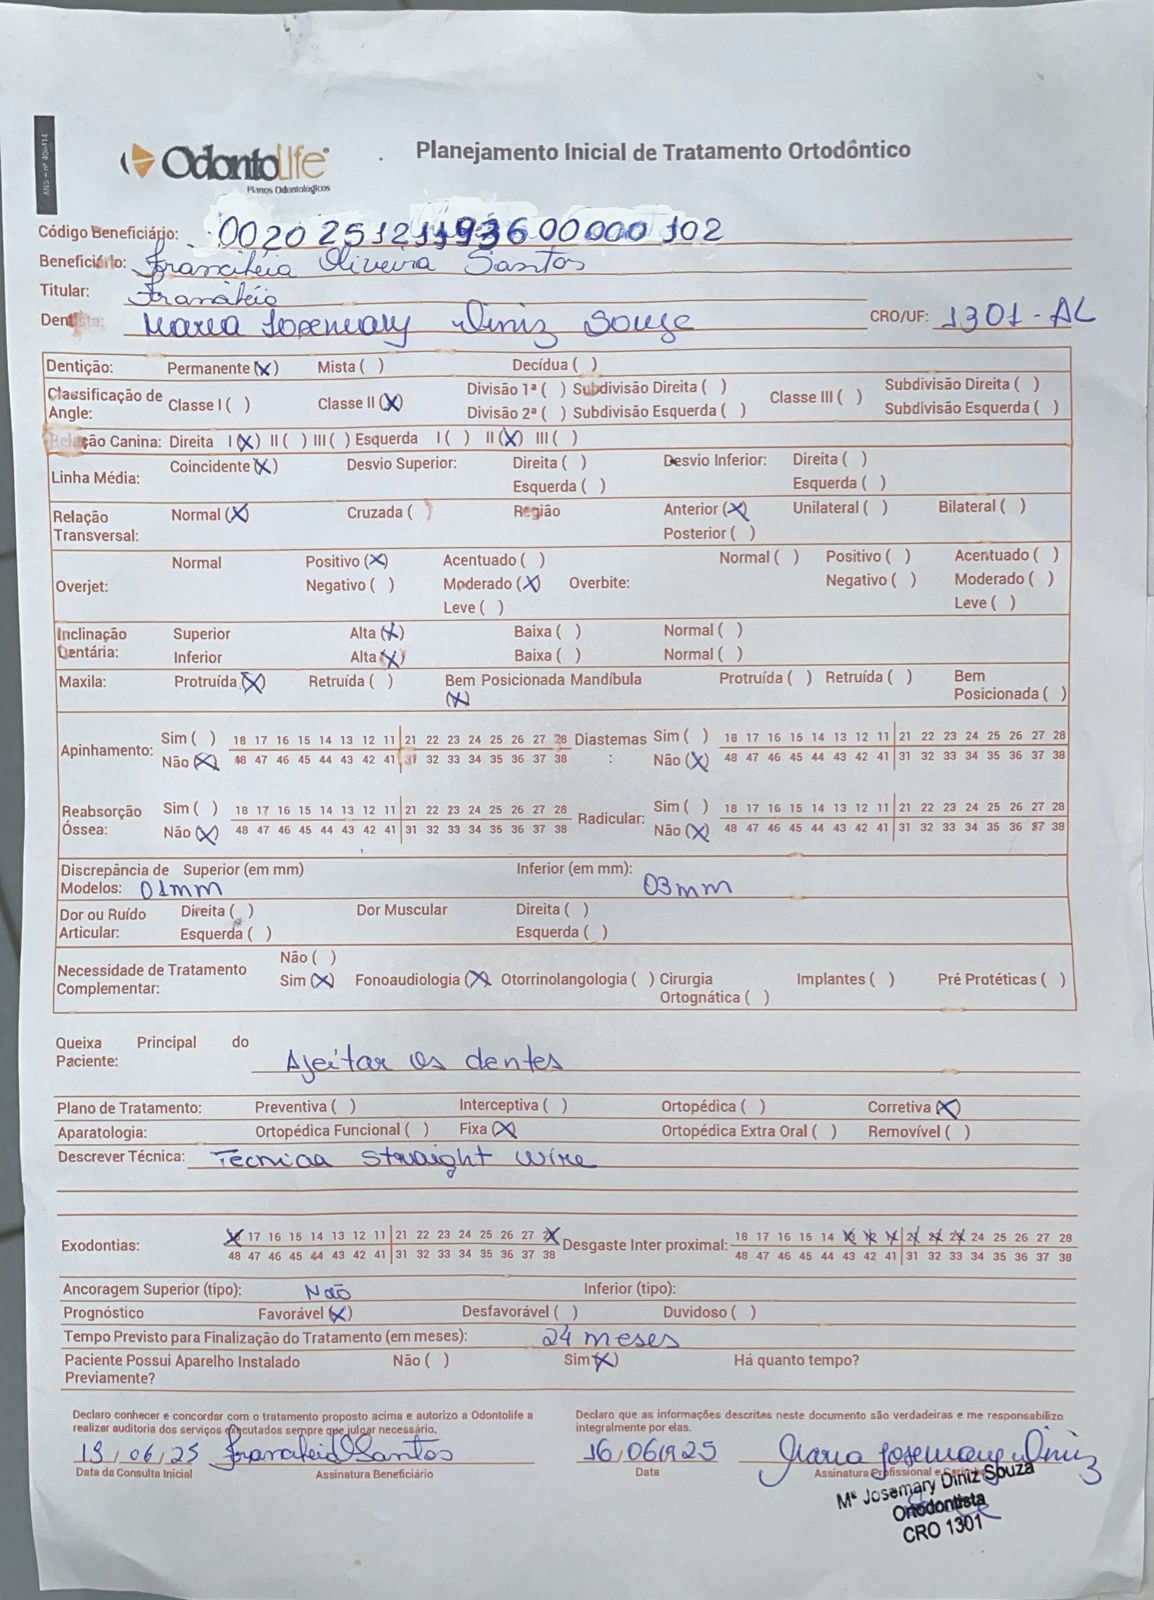 OdontoLife
Planos Odontológicos
Planejamento Inicial de Tratamento Ortodôntico
Código Beneficiário: 00202512119360000 0102
Beneficiário: Francileia Oliveira Santos
Titular: Francileia
Dentista: Maria Josemary Diniz Souza CRO/UF: 1301-AL
Dentição: Permanente (X) Mista ( ) Decídua ( )
Classificação de Angle: Classe I ( ) Classe II (X) Divisão 1ª ( ) Subdivisão Direita ( ) Classe III ( ) Subdivisão Direita ( )
Divisão 2ª ( ) Subdivisão Esquerda ( ) Subdivisão Esquerda ( )
Relação Canina: Direita I (X) II ( ) III ( ) Esquerda I ( ) II (X) III ( )
Linha Média: Coincidente (X) Desvio Superior: Direita ( ) Desvio Inferior: Direita ( )
Esquerda ( ) Esquerda ( )
Relação Transversal: Normal (X) Cruzada ( ) Região Anterior (X) Unilateral ( ) Bilateral ( )
Posterior ( )
Overjet: Normal Positivo (X) Acentuado ( ) Overbite: Normal ( ) Positivo ( ) Acentuado ( )
Negativo ( ) Moderado (X) Negativo ( ) Moderado ( )
Leve ( ) Leve ( )
Inclinação Dentária: Superior Alta (X) Baixa ( ) Normal ( )
Inferior Alta (X) Baixa ( ) Normal ( )
Maxila: Protruída (X) Retruída ( ) Bem Posicionada (X) Mandíbula Protruída ( ) Retruída ( ) Bem Posicionada ( )
Apinhamento: Sim ( ) 18 17 16 15 14 13 12 11 21 22 23 24 25 26 27 28 Diastemas: Sim ( ) 18 17 16 15 14 13 12 11 21 22 23 24 25 26 27 28
Não (X) 48 47 46 45 44 43 42 41 31 32 33 34 35 36 37 38 Não (X) 48 47 46 45 44 43 42 41 31 32 33 34 35 36 37 38
Reabsorção Óssea: Sim ( ) 18 17 16 15 14 13 12 11 21 22 23 24 25 26 27 28 Radicular: Sim ( ) 18 17 16 15 14 13 12 11 21 22 23 24 25 26 27 28
Não (X) 48 47 46 45 44 43 42 41 31 32 33 34 35 36 37 38 Não (X) 48 47 46 45 44 43 42 41 31 32 33 34 35 36 37 38
Discrepância de Modelos: Superior (em mm) 01mm Inferior (em mm): 03mm
Dor ou Ruído Articular: Direita ( ) Dor Muscular Direita ( )
Esquerda ( ) Esquerda ( )
Necessidade de Tratamento Complementar: Não ( )
Sim (X) Fonoaudiologia (X) Otorrinolangologia ( ) Cirurgia Ortognática ( ) Implantes ( ) Pré Protéticas ( )
Queixa Principal do Paciente: Ajeitar os dentes
Plano de Tratamento: Preventiva ( ) Interceptiva ( ) Ortopédica ( ) Corretiva (X)
Aparatologia: Ortopédica Funcional ( ) Fixa (X) Ortopédica Extra Oral ( ) Removível ( )
Descrever Técnica: Tecnica Straight Wire
Exodontias: 18 17 16 15 14 13 12 11 21 22 23 24 25 26 27 28 Desgaste Inter proximal: 18 17 16 15 14 13 12 11 21 22 23 24 25 26 27 28
48 47 46 45 44 43 42 41 31 32 33 34 35 36 37 38 48 47 46 45 44 43 42 41 31 32 33 34 35 36 37 38
Ancoragem Superior (tipo): Não Inferior (tipo):
Prognóstico Favorável (X) Desfavorável ( ) Duvidoso ( )
Tempo Previsto para Finalização do Tratamento (em meses): 24 meses
Paciente Possui Aparelho Instalado Previamente? Não ( ) Sim (X) Há quanto tempo?
Declaro conhecer e concordar com o tratamento proposto acima e autorizo a Odontolife a
realizar auditoria dos serviços executados sempre que julgar necessário.
Declaro que as informações descritas neste documento são verdadeiras e me responsabilizo
integralmente por elas.
13/06/25 Francileia O Santos 16/06/1925 Maria Josemary Diniz
Data da Consulta Inicial Assinatura Beneficiário Data Assinatura Profissional e
Mª Josemary Diniz Souza
Ortodontista
CRO 1301